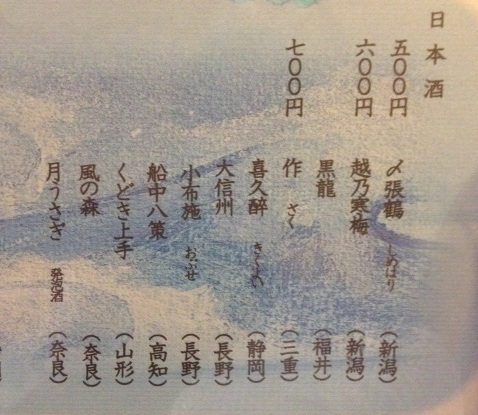 日本酒
五〇〇円 〆張鶴 しめはり (新潟)
六〇〇円 越乃寒梅 (新潟)
黒龍 (福井)
七〇〇円 作 ざく (三重)
喜久醉 きくよい (静岡)
大信州 (長野)
小布施 おぶせ (長野)
船中八策 (高知)
くどき上手 (山形)
風の森 (奈良)
月うさぎ 発泡酒 (奈良)